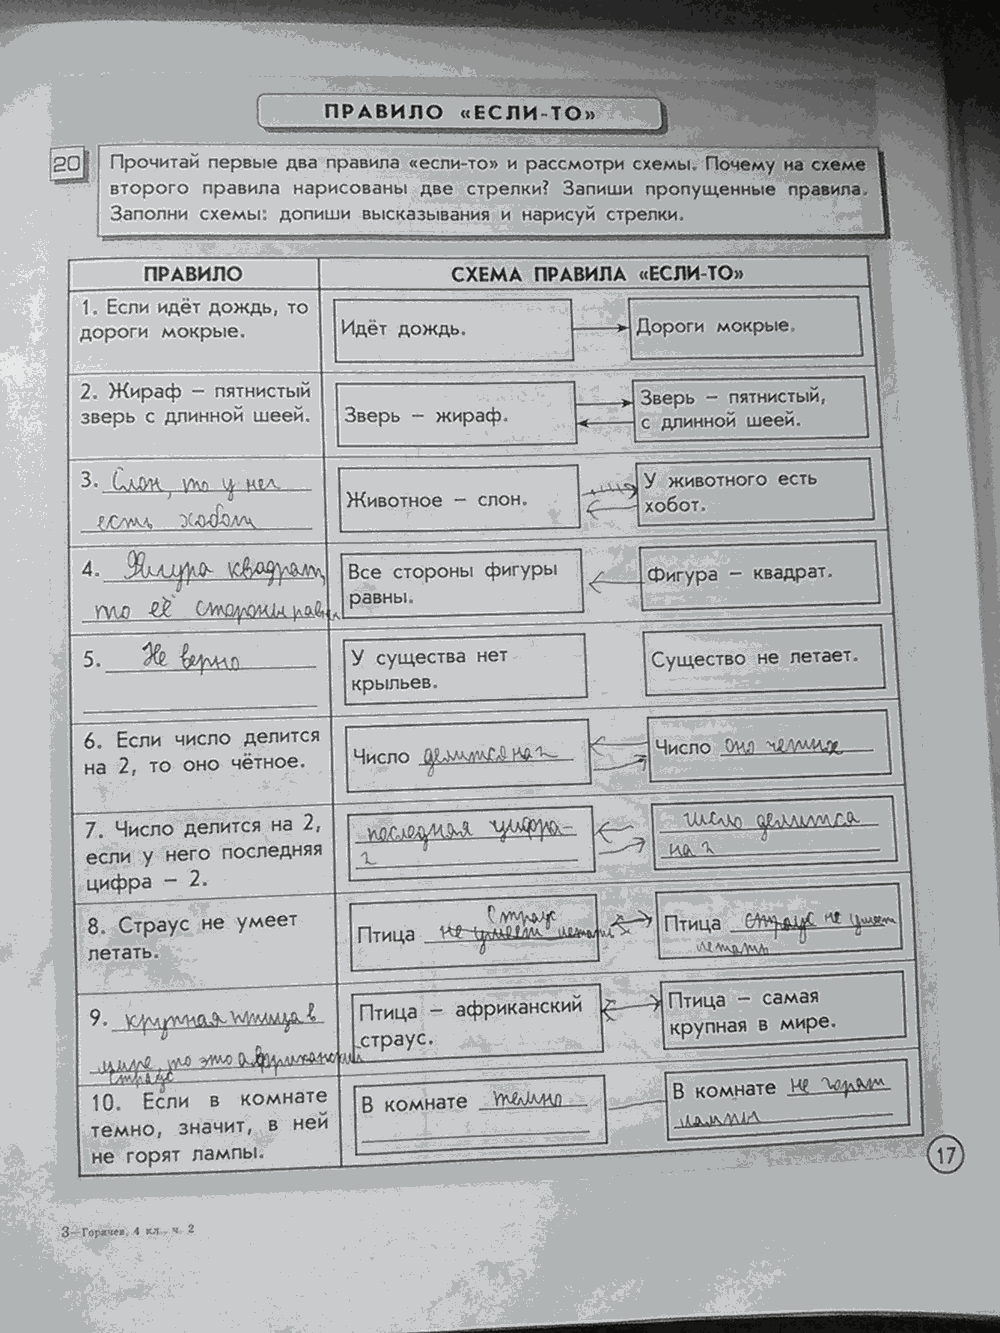 ПРАВИЛО «ЕСЛИ-ТО»
20
Прочитай первые два правила «если-то» и рассмотри схемы. Почему на схеме
второго правила нарисованы две стрелки? Запиши пропущенные правила.
Заполни схемы: допиши высказывания и нарисуй стрелки.
ПРАВИЛО
СХЕМА ПРАВИЛА «ЕСЛИ-ТО»
1. Если идёт дождь, то
дороги мокрые.
Идёт дождь.
Дороги мокрые.
2. Жираф – пятнистый
зверь с длинной шеей.
Зверь – жираф.
Зверь – пятнистый,
с длинной шеей.
3. Слон, то у нег
есть хобот
Животное – слон.
У животного есть
хобот.
4. Фигура квадрат,
то её стороны равны
Все стороны фигуры
равны.
Фигура – квадрат.
5. Не верно
У существа нет
крыльев.
Существо не летает.
6. Если число делится
на 2, то оно чётное.
Число делится на 2
Число оно четное
7. Число делится на 2,
если у него последняя
цифра – 2.
последняя цифра-
2
число делится
на 2
8. Страус не умеет
летать.
Страус
Птица не умеет летать
Птица страус не умеет
летать
9. крупная птица в
мире, то это африканский
страус
Птица – африканский
страус.
Птица – самая
крупная в мире.
10. Если в комнате
темно, значит, в ней
не горят лампы.
В комнате темно
В комнате не горят
лампы
17
3—Горячев, 4 кл., ч. 2